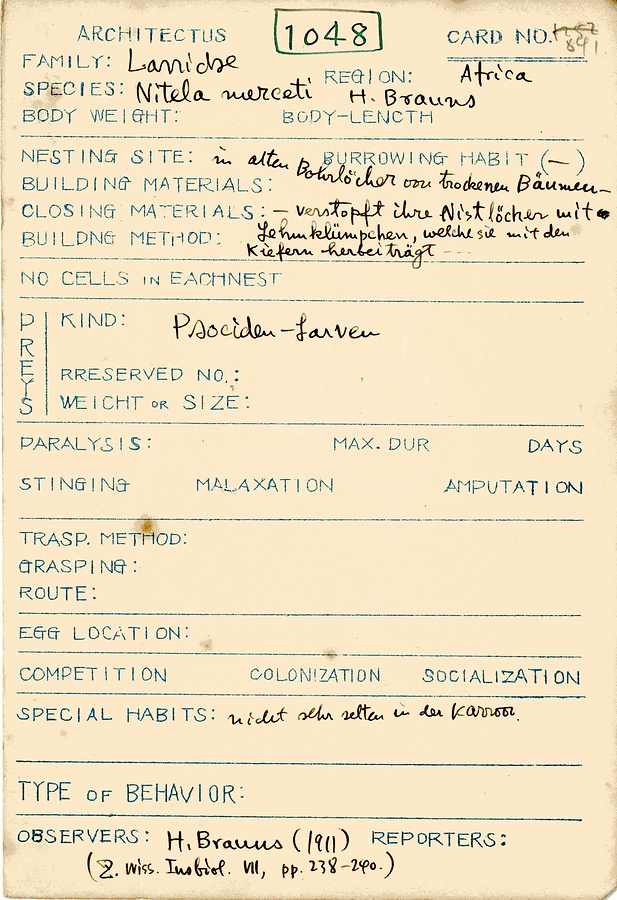 ARCHITECTUS 1048 CARD NO. 1752
841
FAMILY: Larridse
REGION: Africa
SPECIES: Nitela merceti H. Brauns
BODY WEIGHT: BODY-LENGTH
NESTING SITE: in alten Bohrlöcher von trockenen Bäumen-
BURROWING HABIT (—)
BUILDING MATERIALS:
CLOSING MATERIALS: - verstopft ihre Nistlöcher mit
BUILDNG METHOD: Lehmklümpchen, welche sie mit den
Kiefern herbei trägt ---
NO CELLS IN EACHNEST
PREYS
KIND: Psociden-Larven
RRESERVED NO.:
WEICHT OR SIZE:
PARALYSIS: MAX. DUR DAYS
STINGING MALAXATION AMPUTATION
TRASP. METHOD:
GRASPING:
ROUTE:
EGG LOCATION:
COMPETITION COLONIZATION SOCIALIZATION
SPECIAL HABITS: nicht sehr selten in der Karroo.
TYPE OF BEHAVIOR:
OBSERVERS: H. Brauns (1911) REPORTERS:
(Z. wiss. Insbiol. VII, pp. 238-240.)